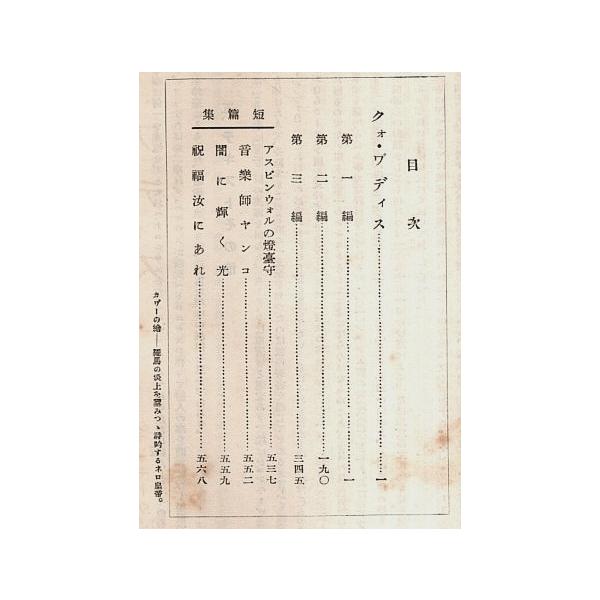 目次
クォ・ヷディス……一
第一編……一
第二編……一九〇
第三編……三四五
短篇集
アスピンウォルの燈臺守……五三七
音樂師ヤンコ……五五二
闇に輝く光……五五九
祝福汝にあれ……五六八
カヴーの繪——羅馬の炎上を望みつゝ詩吟するネロ皇帝。